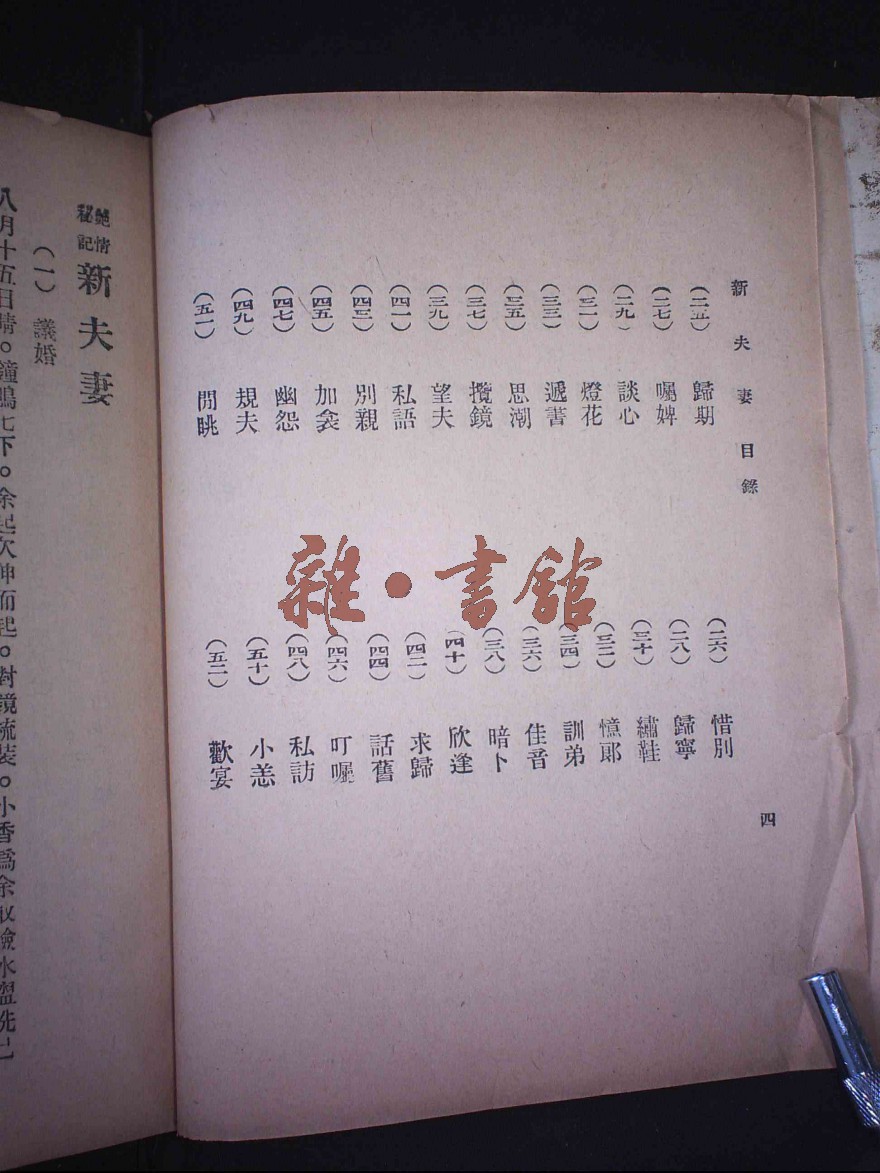 新夫妻目錄
(二五) 歸期
(二六) 惜別
(二七) 囑婢
(二八) 歸寧
(二九) 談心
(三十) 繡鞋
(三一) 燈花
(三二) 憶郎
(三三) 遞書
(三四) 訓弟
(三五) 思潮
(三六) 佳音
(三七) 攬鏡
(三八) 暗卜
(三九) 望夫
(四十) 欣逢
(四一) 私語
(四二) 求歸
(四三) 別親
(四四) 話舊
(四五) 加衾
(四六) 叮囑
(四七) 幽怨
(四八) 私訪
(四九) 規夫
(五十) 小恙
(五一) 閒眺
(五二) 歡宴
四
雜•書館
艷情秘記 新夫妻
(一) 議婚
八月十五日晴。鐘鳴七下。余起欠伸而起。對鏡梳裝。小香爲余收撿水盥洗已